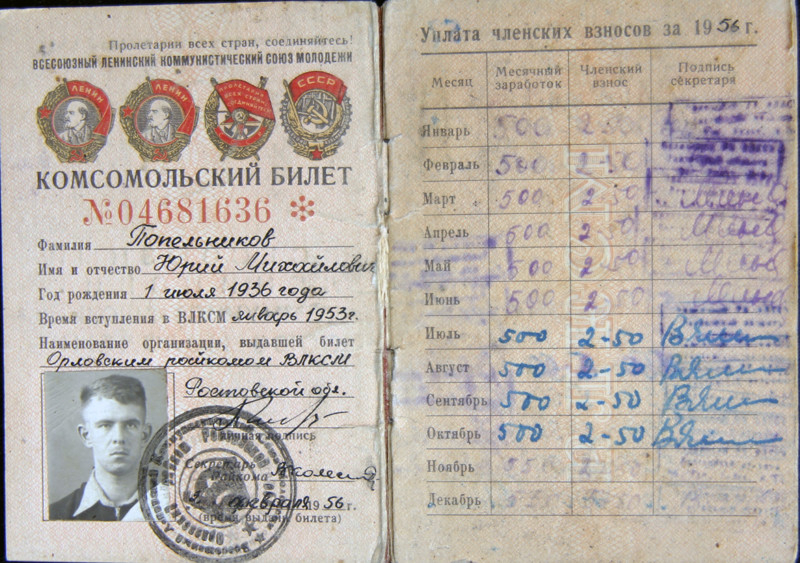 Пролетарии всех стран, соединяйтесь!
ВСЕСОЮЗНЫЙ ЛЕНИНСКИЙ КОММУНИСТИЧЕСКИЙ СОЮЗ МОЛОДЕЖИ
ЛЕНИН ЛЕНИН СССР
КОМСОМОЛЬСКИЙ БИЛЕТ
№04681636
Фамилия Попельников
Имя и отчество Юрий Михайлович
Год рождения 1 июля 1936 года
Время вступления в ВЛКСМ январь 1953г.
Наименование организации, выдавшей билет
Орловским райкомом ВЛКСМ
Ростовской обл.
Личная подпись
Секретарь
Райкома
февраля 1956 г.
(время выдачи билета)
Уплата членских взносов за 1956 г.
Месяц Месячный заработок Членский взнос Подпись секретаря
Январь 500 2-50
Февраль 500 2-50
Март 500 2-50
Апрель 500 2-50
Май 500 2-50
Июнь 500 2-50
Июль 500 2-50
Август 500 2-50
Сентябрь 500 2-50
Октябрь 500 2-50
Ноябрь
Декабрь